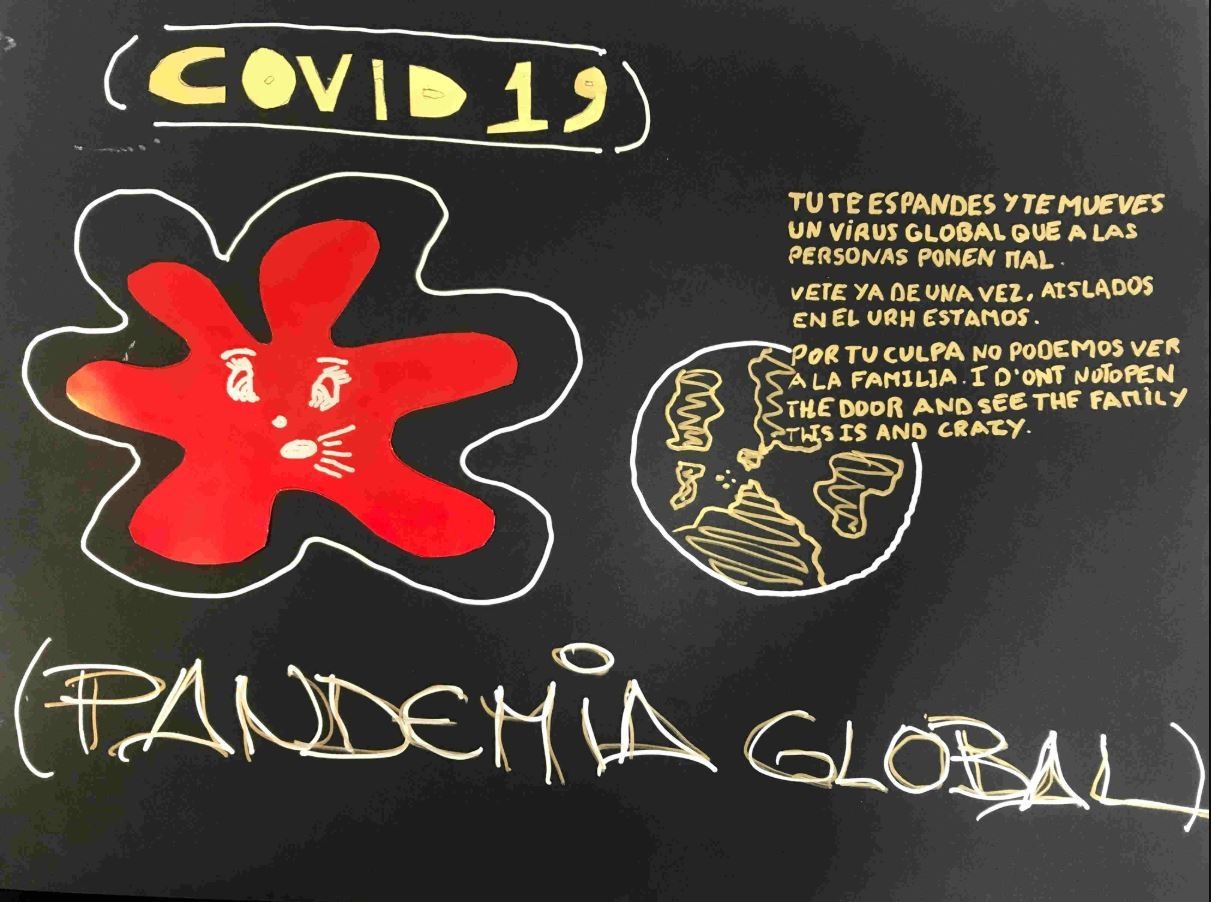 (COVID 19)
TU TE ESPANDES Y TE MUEVES
UN VIRUS GLOBAL QUE A LAS
PERSONAS PONEN MAL.
VETE YA DE UNA VEZ, AISLADOS
EN EL URH ESTAMOS.
POR TU CULPA NO PODEMOS VER
A LA FAMILIA. I D'ONT NOTOPEN
THE DOOR AND SEE THE FAMILY
THIS IS AND CRAZY.
(PANDEMIA GLOBAL)